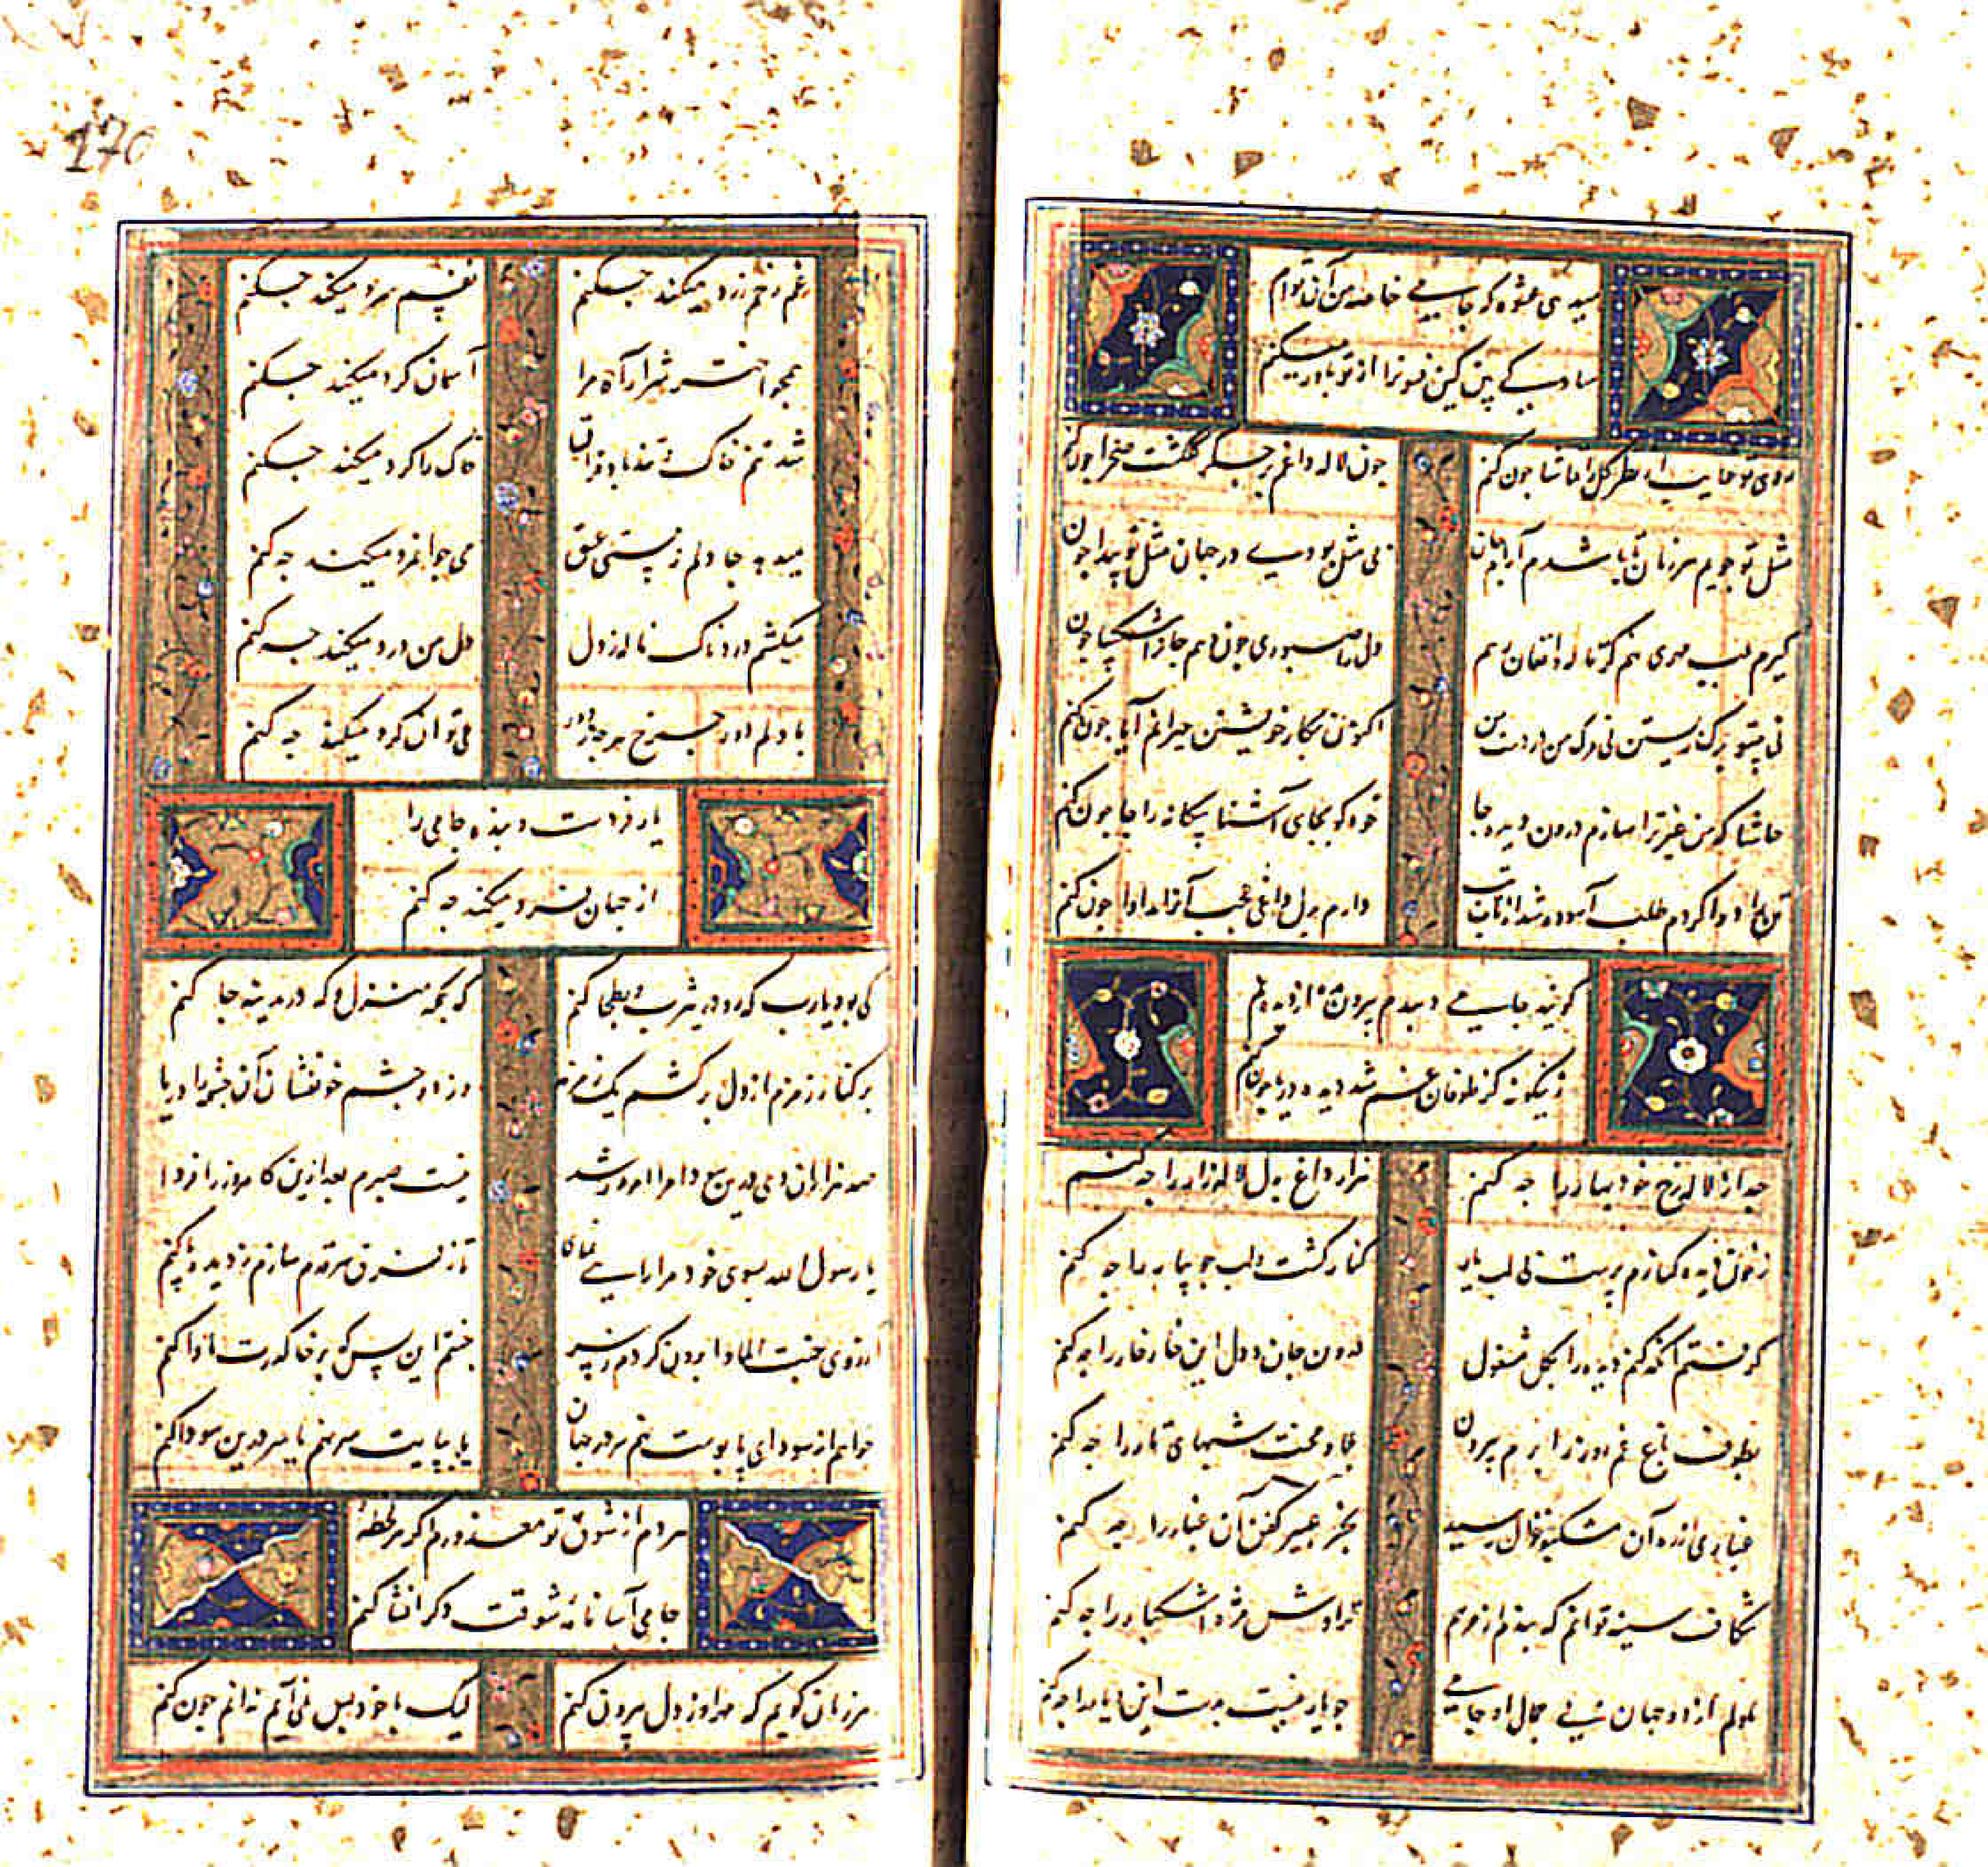 میدهی عشوه که جامی خاصه من آن توام
ساده‌ای بین کین فسونرا از تو باور میکنم
روی تو غایب از نظر گل را تماشا چون کنم
چون لاله داغم بر جگر گلگشت صحرا چون کنم
مثل تو جویم هر زمان تا باشدم آرام جان
بی مثل بودی در جهان مثل تو پیدا چون کنم
گیرم بلب مهری نهم کز ناله و افغان رهم
دل را صبوری چون دهم جانرا شکیبا چون کنم
نی پیش تو برگ زیستن نی مرگ من در دست من
اکنون بکار خویشتن حیرانم آیا چون کنم
حاشا که من غیر ترا سازم درون دیده جا
خود گو بجای آشنا بیگانه را جا چون کنم
تن را دوا کردم طلب آسوده شد از تاب تب
دارم بدل داغی عجب آنرا مداوا چون کنم
گویند جامی دمبدم بیرون مده از دیده نم
زینگونه کز طوفان غم شد دیده دریا چون کنم
جدا از لاله رخ خود بهار را چه کنم
هزار داغ بدل لاله‌زار را چه کنم
ز خون دیده کنارم پرست بی لب یار
کنار کشت و لب جویبار را چه کنم
گرفتم آنکه کنم دیده را بگل مشغول
درون جان و دل این خار خار را چه کنم
بطوف باغ غم روز را برم بیرون
بلا و محنت شبهای تار را چه کنم
غباری از ره آن مشکبو غزال رسید
بجز عبیر کفن آن غبار را چه کنم
شکاف سینه توانم که بندم از مرهم
تراوش مژه اشکبار را چه کنم
ملولم از دو جهان بی جمال او جامی
چو یار نیست بدست این دیار را چه کنم
170
غم رخم زرد میکند چکنم
نفسم سرد میکند چکنم
همچو اختر شرار آه مرا
آسمان گرد میکند چکنم
شد تنم خاک و تندباد فراق
خاک را گرد میکند چکنم
میدهد جا دلم ز پستی عشق
می جوانمرد میکند چه کنم
میکشم دردناک ناله ز دل
دل من درد میکند چه کنم
با دلم دور چرخ هر جوری
می توان کرد میکند چه کنم
یار فردست و بنده جامی را
از جهان فرد میکند چه کنم
کی بود یارب که رو در یثرب و بطحا کنم
گه بمکه منزل و گه در مدینه جا کنم
بر کنار زمزم از دل برکشم یک زمزمه
وز دو چشم خونفشان آن چشمه را دریا
صد هزاران دی درین سودا مرا امروز شد
نیست صبرم بعد ازین کامروز را فردا
یا رسول الله بسوی خود مرا راهی نمای
تا ز فرق سر قدم سازم ز دیده پا کنم
آرزوی جنت الماوا برون کردم ز سر
جنتم این بس که بر خاک درت ماوا کنم
خواهم از سودای پابوست نهم سر در جهان
یا بپایت سر نهم یا سر درین سودا کنم
مردم از شوق تو معذورم اگر هر لحظه
جامی آسا نامه شوقت دگر انشا کنم
هر زمان گویم که مهر او ز دل بیرون کنم
لیک با خود بس نمی آیم ندانم چون کنم